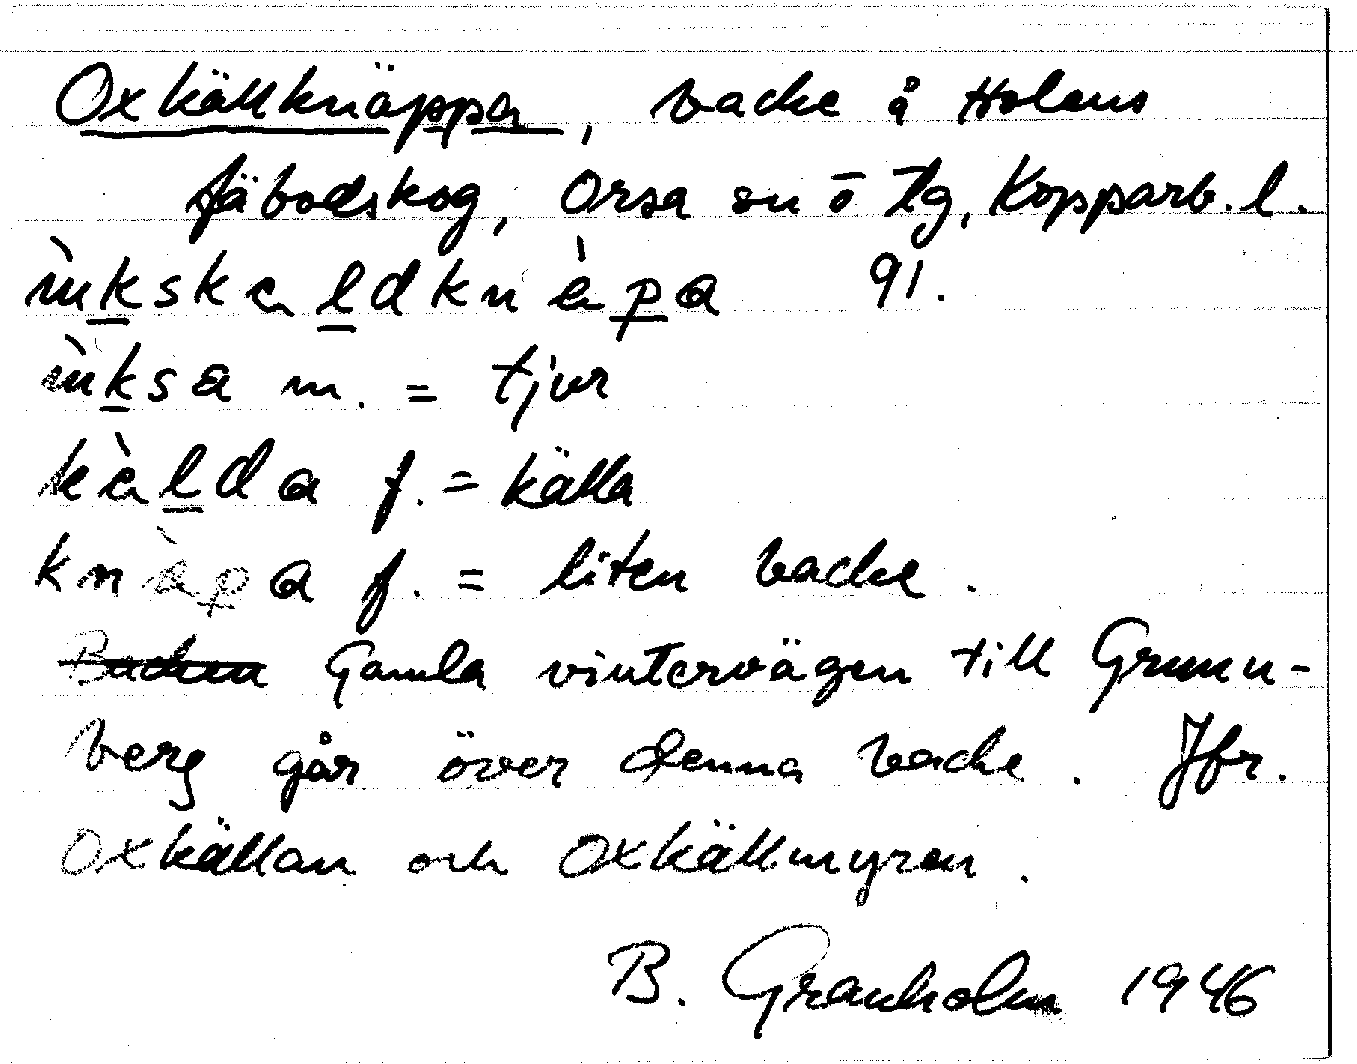 Oxkällknäppa, backe å Holens
fäbodskog, Orsa sn ö tg, Kopparb. l.
ùkskäldknä̀pa 91.
ùksa m. = tjur
kä̀lda f. = källa
knä̀pa f. = liten backe.
Backen Gamla vintervägen till Grunn-
berg går över denna backe. Jfr.
Oxkällan och Oxkällmyren.
B. Granholm 1946